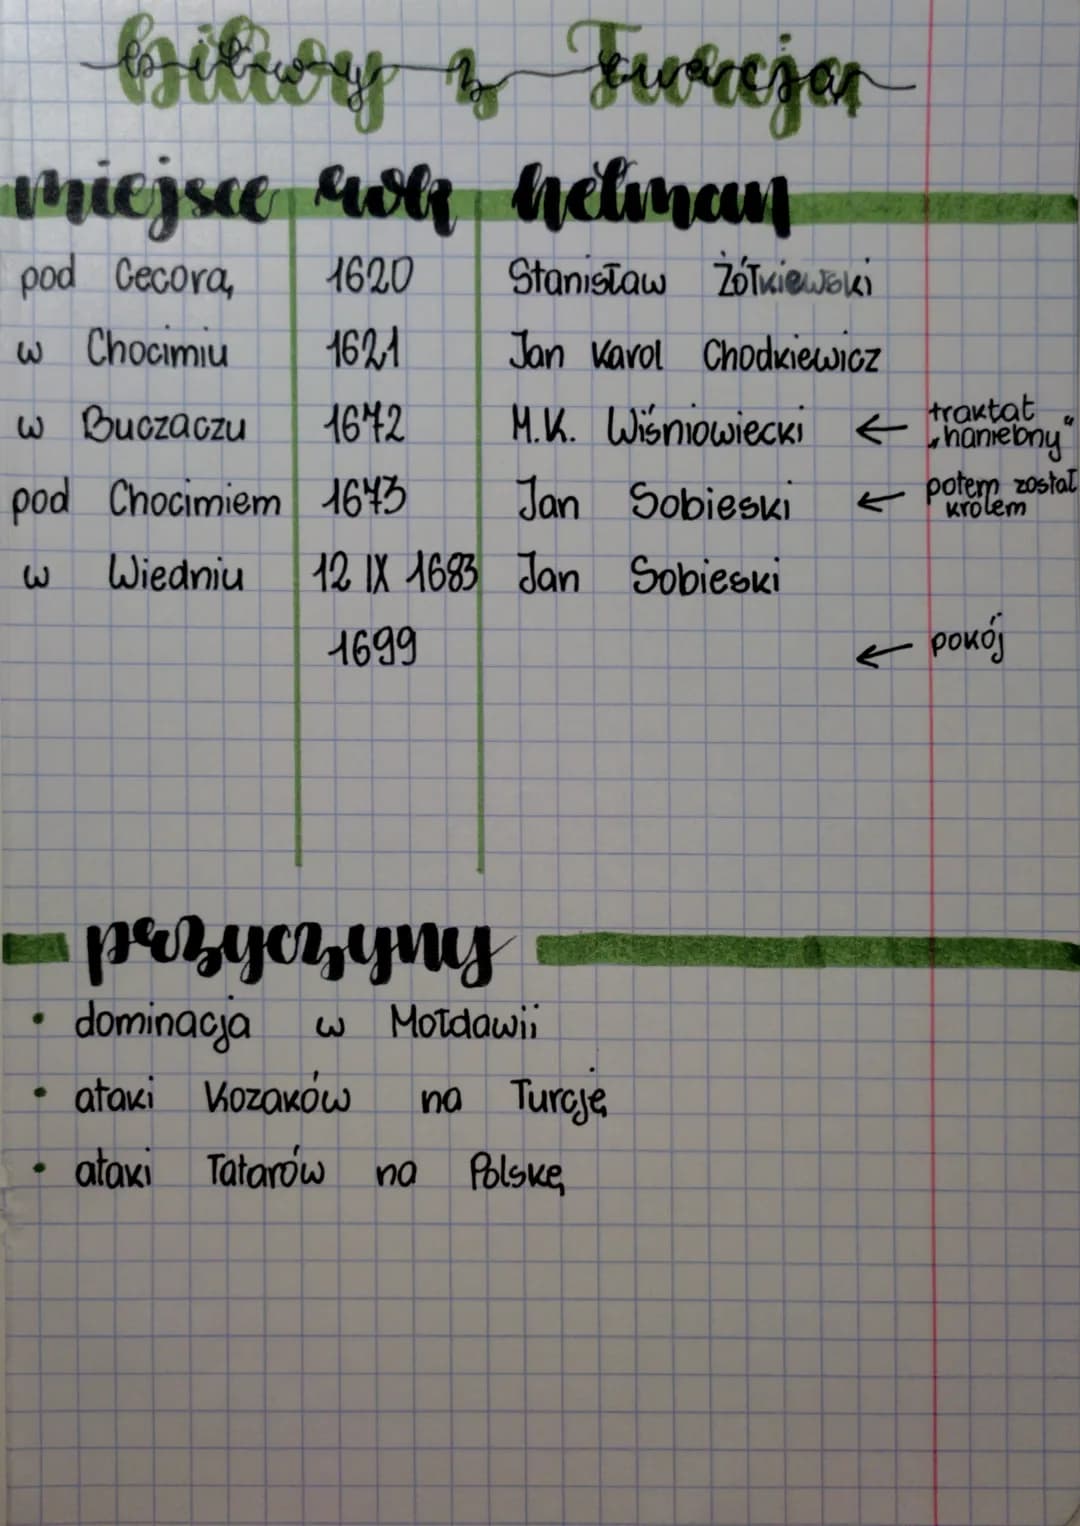 bitwy z Turcją
miejsce rok hetman
pod Cecorą 1620 Stanisław Żółkiewski
w Chocimiu 1621 Jan Karol Chodkiewicz
w Buczaczu 1672 M.K. Wiśniowiecki ← traktat „haniebny"
pod Chocimiem 1673 Jan Sobieski ← potem został królem
w Wiedniu 12 IX 1683 Jan Sobieski
1699 ← pokój
przyczyny
• dominacja w Mołdawii
• ataki Kozaków na Turcję
• ataki Tatarów na Polskę